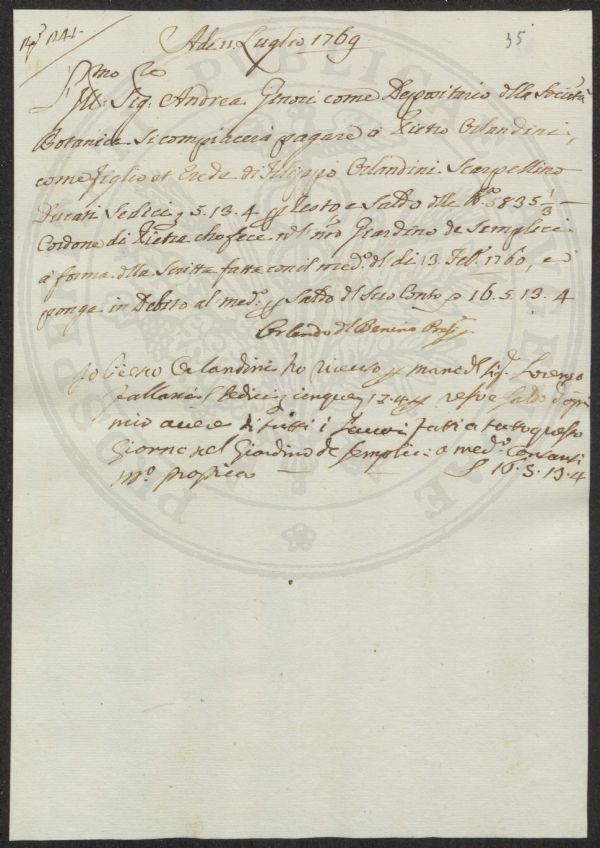 35
Ad. 11. Luglio 1769
Ill: Sig: Andrea Ginori come Depositario della Società
Botanica Si compiacerà pagare à Pietro Orlandini,
come figlio et Erede di Filippo Orlandini Scarpellino
Ducati Sedici 5.13.4 Resto e Saldo delle Ba 5835 1/3
Cordone di Pietra che fece nel nro Giardino de Semplici
a forma dlla Scritta fatta con il med:o dl di 13 Feb: 1760, e
ponga in Debito al med:o Saldo dl Suo Conto 16.5.13.4
Orlando dl Benino
Io Pietro Orlandini ho ricevuto mano dl Sig:
sedici cinque 13.4 resto e saldo d'ogni
mio avere di tutti i lauori fatti a tutto questo
Giorno nel Giardino de Semplici: a med:o Contanti
m:o propria 16.5.13.4
PUBLICAE
PROSPERITATI